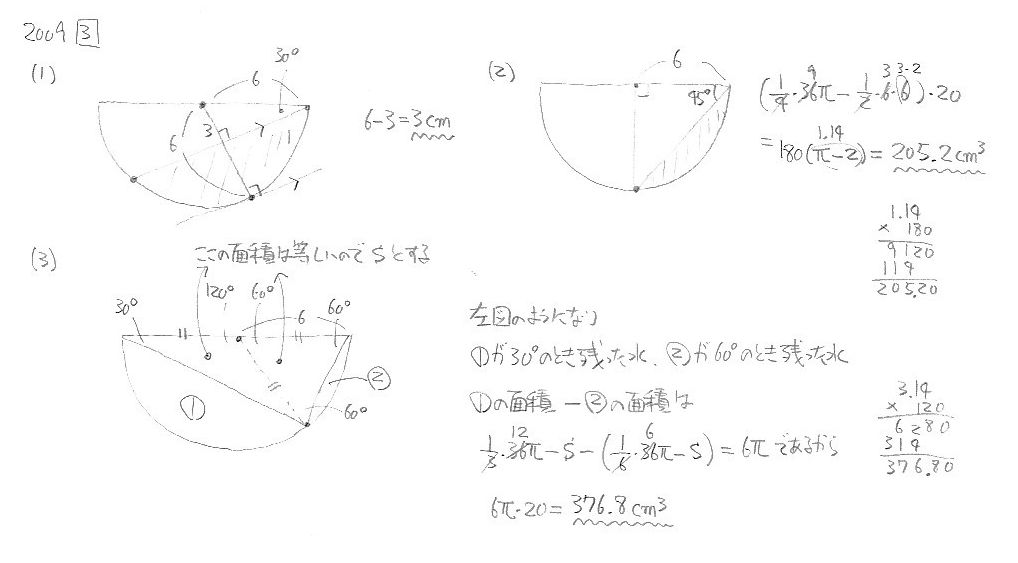 2009 3
(1)
30°
6
6
3
6-3=3cm
(2)
6
45°
(1/4・36π-1/2・6・6)・20
9
3 3・2
=180(π-2)=205.2cm³
1.14
1.14
× 180
9120
114
205.20
(3)
ここの面積は等しいのでSとする
30°
120°
60°
6
60°
60°
①
②
左図のようになり
①が30°のとき残った水、②が60°のとき残った水
①の面積-②の面積は
1/3・36π-S-(1/6・36π-S)=6πであるから
12
6
6π・20=376.8cm³
3.14
× 120
6280
314
376.80